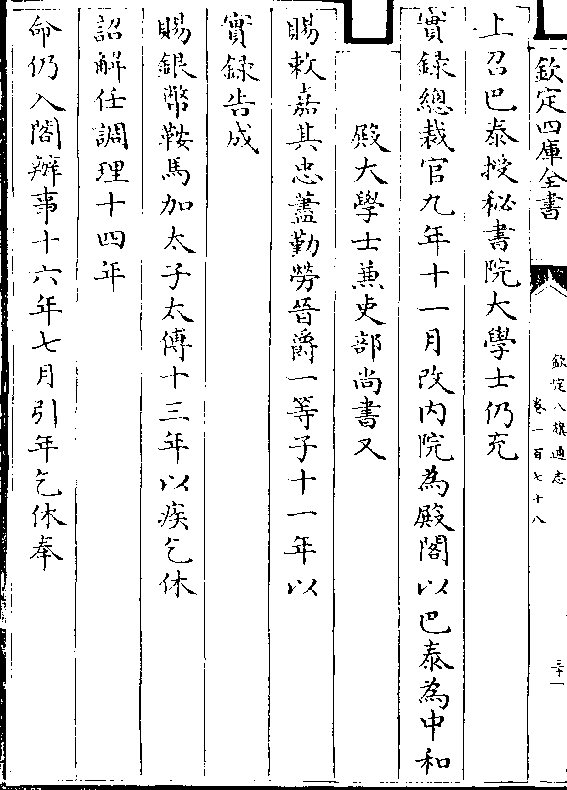 欽定四庫全書
欽定八旗通志
卷一百七十八
三十一
上召巴泰授秘書院大學士仍充
實録總裁官九年十一月改内院為殿閣以巴泰為中和
殿大學士兼吏部尚書又
賜敕嘉其忠藎勤勞晉爵一等子十一年以
實録告成
賜銀幣鞍馬加太子太傅十三年以疾乞休
詔解任調理十四年
命仍入閣辦事十六年七月引年乞休奉